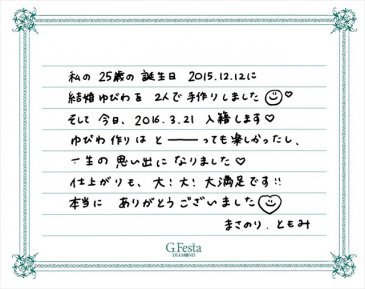 私の 25歳の 誕生日 2015.12.12に
結婚ゆびわを 2人で手作りしました☺♡
そして 今日、2016.3.21 入籍します♡
ゆびわ作りは と———っても楽しかったし、
一生の 思い出に なりました♡
仕上がりも、大!大!大満足です!!
本当に ありがとうございました
まさのり.ともみ
G.Festa
DIAMOND